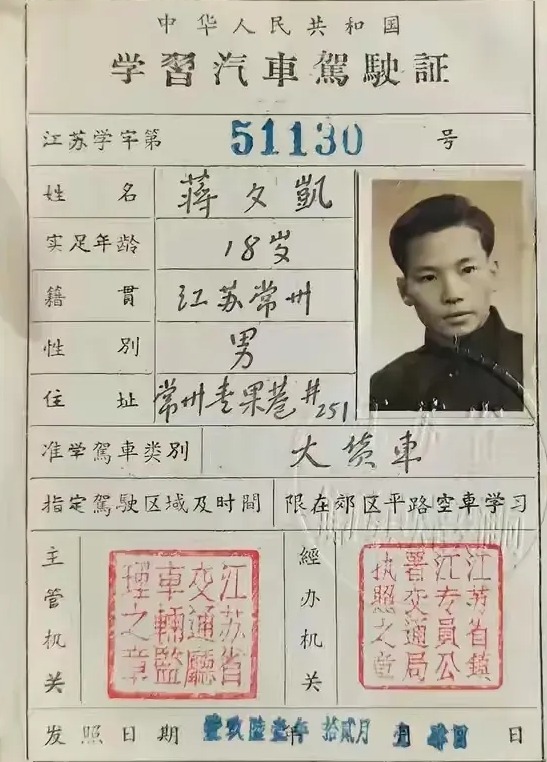 中华人民共和国
学習汽車駕駛証
江苏学字第 51130 号
姓 名 蒋夕凱
实足年龄 18岁
籍 貫 江苏常州
性 別 男
住 址 常州青果巷#251
准学駕車类別 大货車
指定駕駛区域及时間 限在郊区平路空車学习
主管机关 江苏省交通廳車輛監理之章
經办机关 江苏省鎮江专員公署交通局执照之章
发照日期 壹玖陸壹年 拾貳月 日